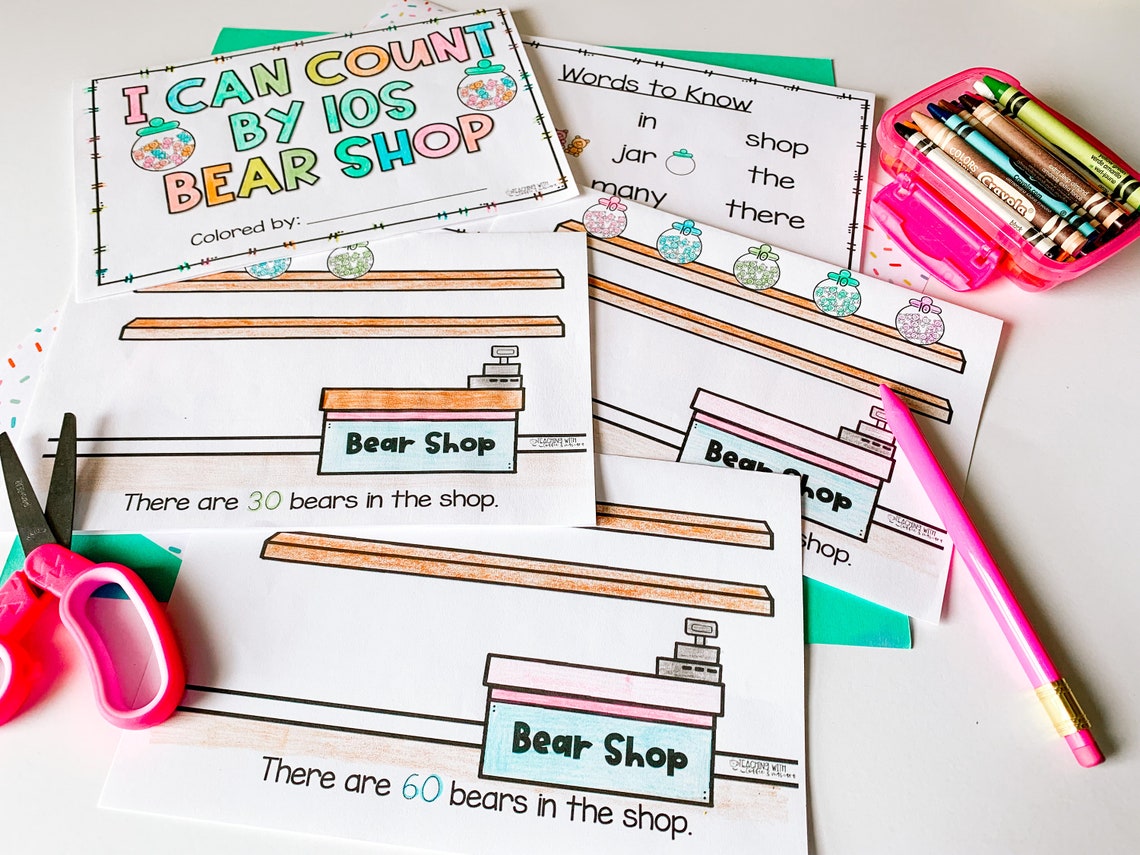 I CAN COUNT
BY 10S
BEAR SHOP
Colored by:
Words to Know
in
shop
jar
the
many
there
10
10
10
10
10
Bear Shop
TEACHING WITH
There are 30 bears in the shop.
Bear Shop
shop.
Bear Shop
TEACHING WITH
There are 60 bears in the shop.
COLORS
Crayola